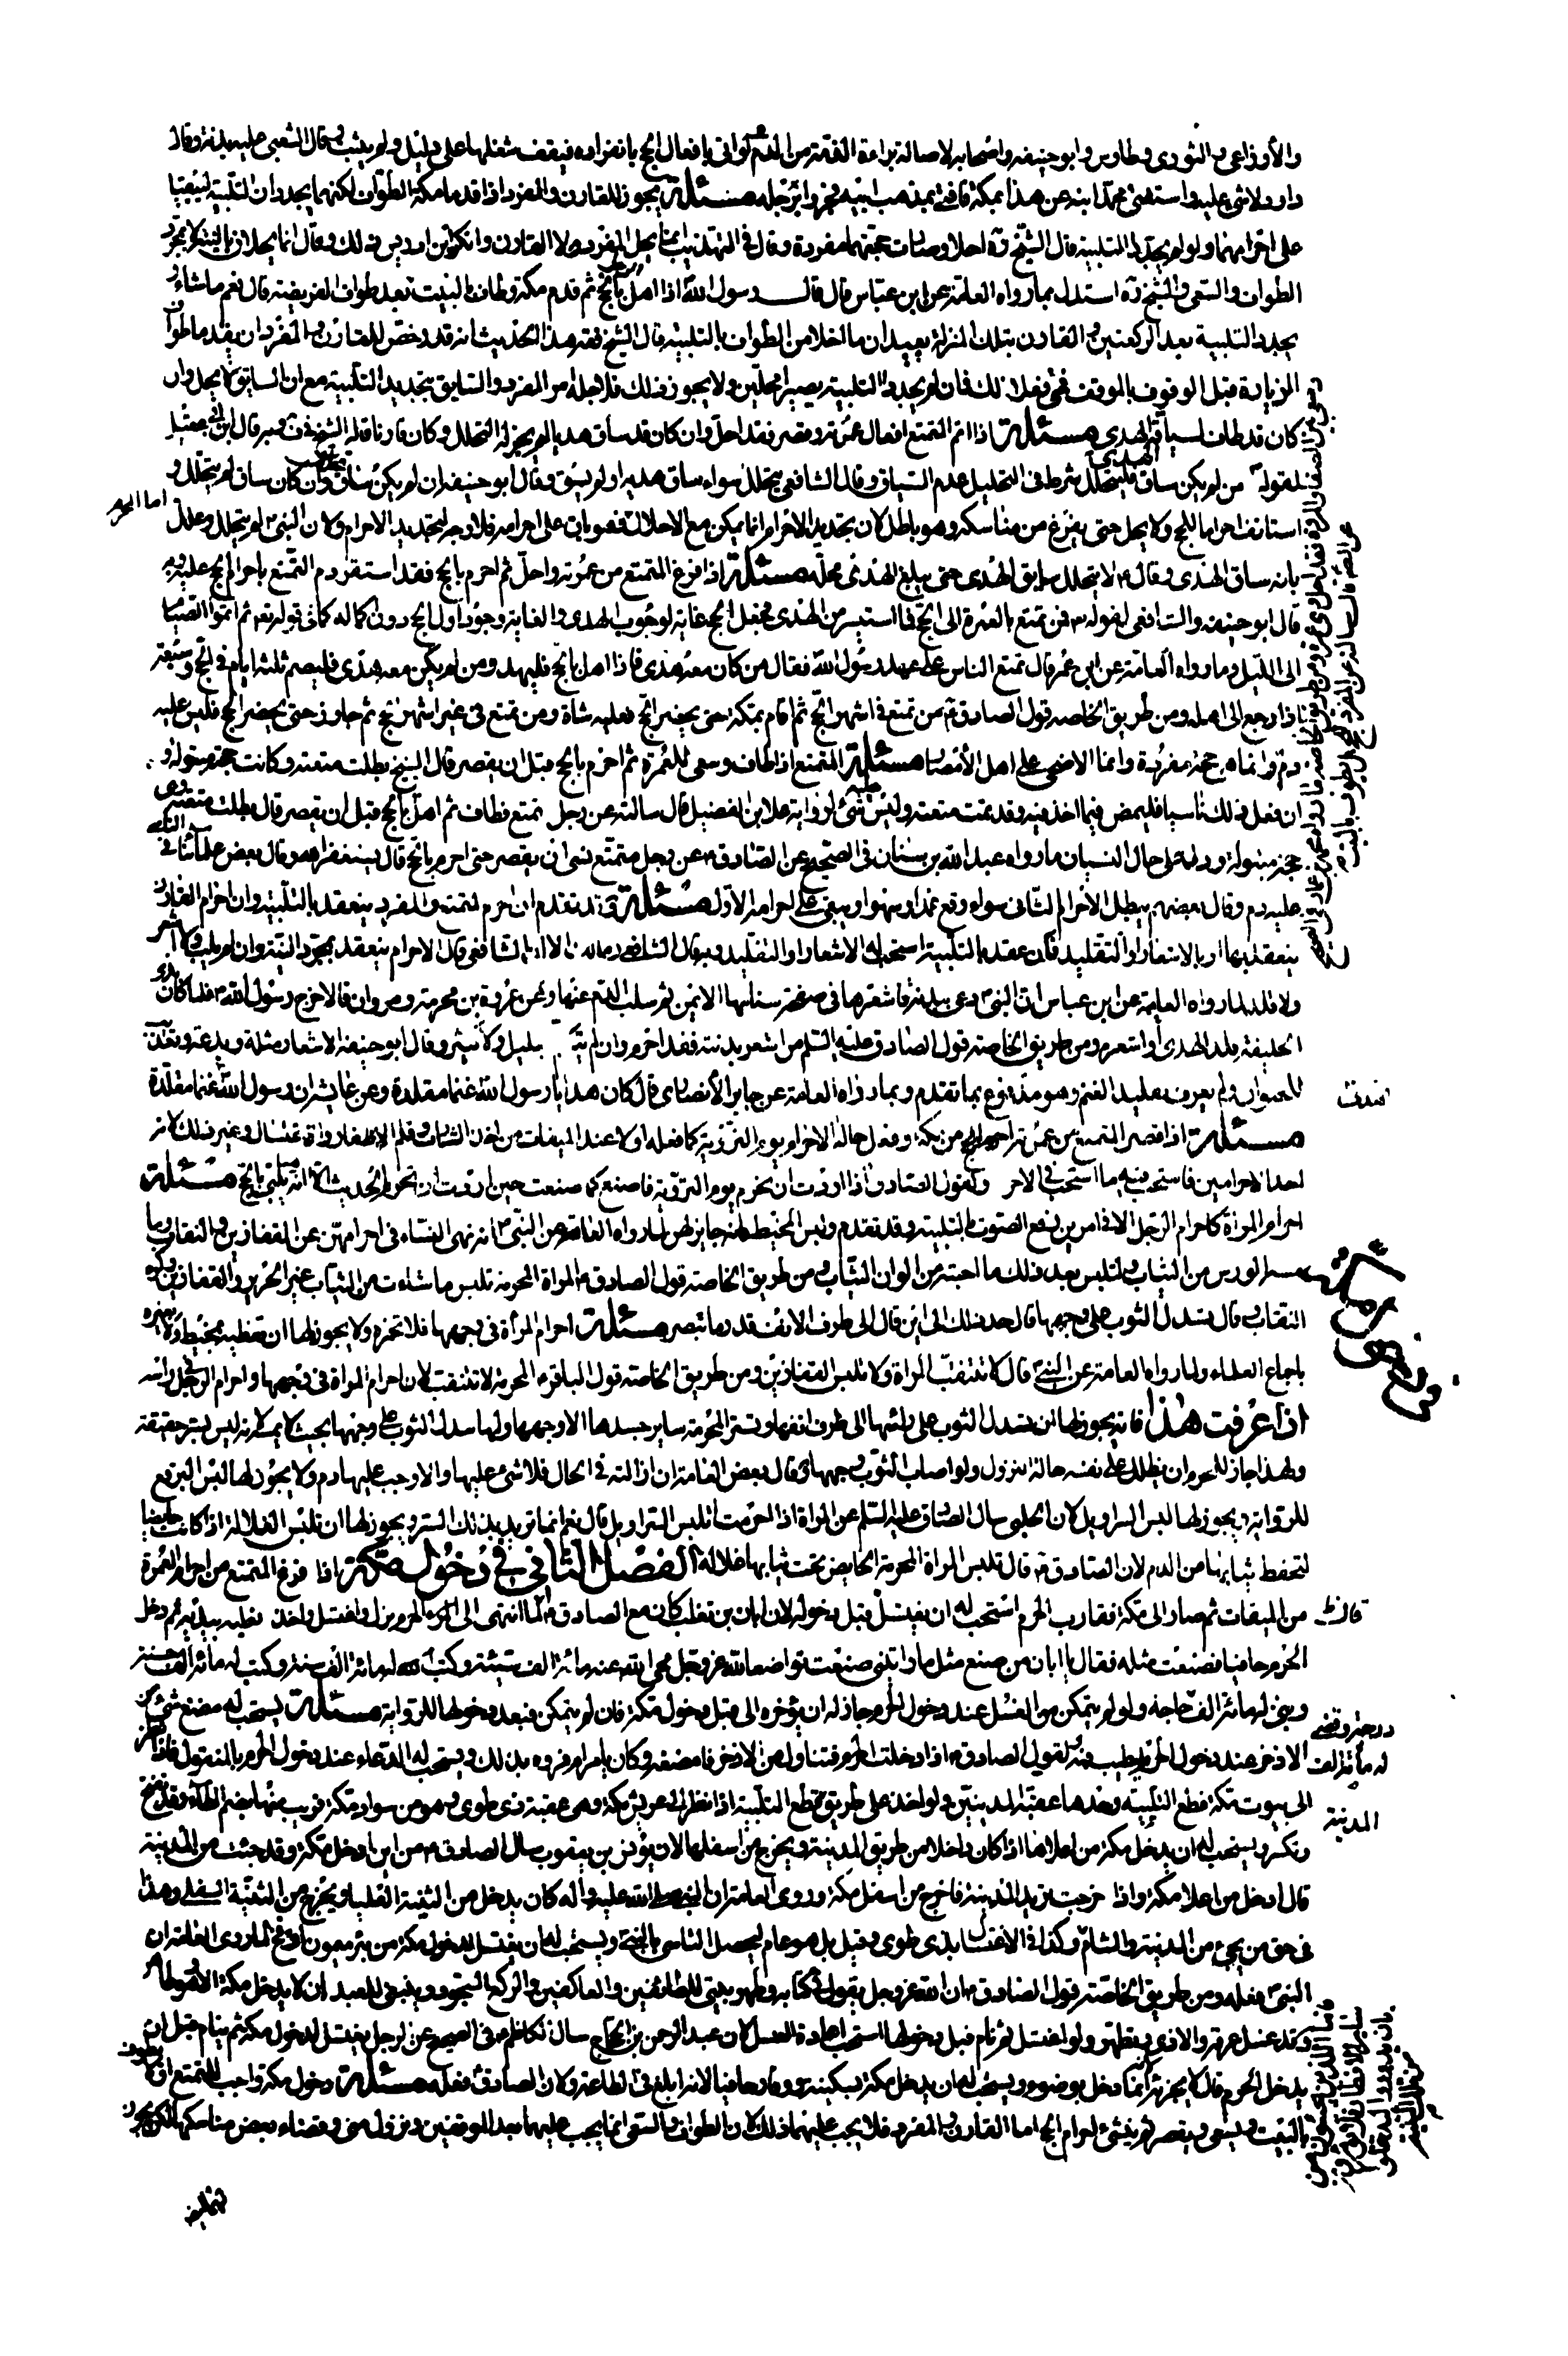 والأوزاعى والثورى وطاوس وابو حنيفه واصحابه لاصالة براءة الذمة من الدم لو اتى بافعال الحج بانفراده فيقف شغلها على دليل ولم يثبت وقال الشعبى عليه بدنة وقال
داود لا شئ عليه واستفتى محمد ابنه عن هذا بمكة فافتى بمذهب ابيه فجروا برجله مسئلة يجوز للقارن والمفرد اذا قدما مكة الطواف لكنهما يجددان التلبية ليبقيا
على احرامهما ولو لم يجددا التلبية قال الشيخ ره احلا وصارت حجتهما مفردة وقال فى التهذيب انما يحل المفرد لا القارن وانكر ابن ادريس ذلك وقال انما يحلان بالنية لا بمجرد
الطواف والسعى والشيخ ره استدل بما رواه العامة عن ابن عباس قال قال رسول الله اذا اهل بالحج ثم قدم مكة وطاف بالبيت بعد طواف الفريضة قال نعم ما شاء و
يجدد التلبية بعد الركعتين والقارن بتلك المنزلة يعيدان ما احلا من الطواف بالتلبية قال الشيخ فقه هذا الحديث انه قد رخص للقارن والمفرد ان يقدما طواف
الزيارة قبل الوقوف بالموقف فمتى فعلا ذلك فان لم يجددا التلبية يصيرا محلين ولا يجوز ذلك فلاجله امر المفرد والسايق بتجديد التلبية مع ان السايق لا يحل وان
كان قد طاف لسياقة الهدى مسئلة اذا اتم المتمتع افعال عمرته وقصر فقد احل وان كان قد ساق هديا لم يجز له التحلل وكان قارنا قاله الشيخ فى ف وبه قال ابن ابى عقيل
لقوله من لم يكن ساق الهدى فليتحلل شرط فى التحليل عدم السياق وقال الشافعى يتحلل سواء ساق هديه او لم يسق وقال ابو حنيفه ان لم يكن ساق تحلل وان كان ساق لم يتحلل و
استانف احراما للحج ولا يحل حتى يفرغ من مناسكه وهو باطل لان تجديد الاحرام انما يمكن مع الاحلال فهو باق على احرامه فلا وجه لتجديد الاحرام ولان النبى لم يتحلل وعلل
بانه ساق الهدى وقال لا يتحلل سايق الهدى حتى يبلغ الهدى محله مسئلة اذا فرغ المتمتع من عمرته واحل ثم احرم بالحج فقد استقر دم التمتع باحرام الحج عليه وبه
قال ابو حنيفه والشافعى لقوله فمن تمتع بالعمرة الى الحج فما استيسر من الهدى فجعل الحج غاية لوجوب الهدى والغاية وجود اول الحج دون اكماله كما فى قوله ثم اتموا الصيام
الى الليل وما رواه العامة عن ابن عمر قال تمتع الناس على عهد رسول الله فقال من كان معه هدى فاذا اهل بالحج فليهد ومن لم يكن معه هدى فليصم ثلثة ايام فى الحج وسبعة
اذا رجع الى اهله ومن طريق الخاصه قول الصادق من تمتع فى اشهر الحج ثم اقام بمكة حتى يحضر الحج فعليه شاة ومن تمتع فى غير اشهر الحج ثم جاور حتى يحضر الحج فليس عليه
دم وانما هى حجة مفردة وانما الاضحى على اهل الأمصار مسئلة المتمتع اذا طاف وسعى للعمرة ثم احرم بالحج قبل ان يقصر قال الشيخ بطلت متعته وكانت حجة مبتولة و
ان فعل ذلك ناسيا فليمض فيما اخذ فيه وقد تمت متعته وليس عليه شئ لرواية علا ابن الفضيل قال سالته عن رجل تمتع فطاف ثم اهل بالحج قبل ان يقصر قال بطلت متعته هى
حجة مبتولة ودل على حال النسيان ما رواه عبد الله بن سنان فى الصحيح عن الصادق عن رجل متمتع نسى ان يقصر حتى احرم بالحج قال يستغفر الله وقال بعض علمائنا فى
عليه دم وقال بعضهم يبطل الأحرام الثانى سواء وقع عمدا او سهوا ويبقى على احرامه الاول مسئلة قد تقدم ان احرام المتمتع والمفرد ينعقد بالتلبية وان احرام القارن
ينعقد بها او بالاشعار او التقليد فان عقده بالتلبية استحب له الاشعار او التقليد وبه قال الشافعى ومالك الا ان الشافعى قال الاحرام ينعقد بمجرد النية وان لم يلب ولا اشعر
ولا قلد لما رواه العامة عن ابن عباس ان النبى دعى ببدنة فاشعرها فى صفحة سنامها الايمن ثم سلت الدم عنها وعن عروة بن مخرمة ومروان قالا خرج رسول الله فلما كان بذى
الحليفة قلد الهدى واشعره ومن طريق الخاصه قول الصادق عليه السلم من اشعر بدنته فقد احرم وان لم يتكلم بقليل ولا كثير وقال ابو حنيفة الاشعار مثلة وبدعة
ولم يعرف تقليد الغنم وهو مدفوع بما تقدم وبما رواه العامة عن جابر الأنصارى قال كان هدايا رسول الله غنما مقلدة وعن عايشة ان رسول الله غنما مقلدة
مسئلة اذا قصر المتمتع من عمرته احرم بالحج من مكة وفعل حالة الاحرام يوم التروية كما فعله اولا عند الميقات من اخذ الشارب وقلم الاظفار والاغتسال وغير ذلك لانه
احد الاحرامين فاستحب فيه ما استحب فى الاخر ولقول الصادق اذا اردت ان تحرم يوم التروية فاصنع كما صنعت حين اردت ان تحرم الحديث الا انه يلبى بالحج مسئلة
احرام المراة كاحرام الرجل الا فى امرين رفع الصوت بالتلبية وقد تقدم ولبس المخيط فانه جايز لهن لما رواه العامة عن النبى انه نهى النساء فى احرامهن عن القفازين والنقاب وما
مسه الورس من الثياب ولتلبس بعد ذلك ما احبته من الوان الثياب ومن طريق الخاصة قول الصادق المراة المحرمة تلبس ما شاءت من الثياب غير الحرير والقفازين وكره
النقاب وقال تسدل الثوب على وجهها قال حد ذلك الى اين قال الى طرف الانف قدر ما تبصر مسئلة احرام المرأة فى وجهها فلا تخمره ولا يجوز لها ان تغطيه بمخيط ولا بغيره
باجماع العلماء ولما رواه العامة عن النبى قال لا تتنقب المراة ولا تلبس القفازين ومن طريق الخاصه قول الباقر المحرمة لا تتنقب لان احرام المراة فى وجهها واحرام الرجل فى راسه
اذا عرفت هذا فانه يجوز لها ان تسدل الثوب على راسها الى طرف انفها وتستر المحرمة ساير جسدها الا وجهها ولها سدل الثوب على وجهها بحيث لا يمسه لانه ليس بستر حقيقة
ولهذا جاز للمحرم ان يظلل على نفسه حالة النزول ولو اصاب الثوب وجهها قال بعض العامة ان ازالته فى الحال فلا شئ عليها والا وجب عليها دم ولا يجوز لها لبس البرقع
للرواية ويجوز لها لبس السراويل لان الحلبى سال الصادق عليه السلم عن المراة اذا احرمت اتلبس السراويل قال نعم انما تريد بذلك الستر ويجوز لها ان تلبس الغلالة اذا كانت حايضا
لتحفظ ثيابها من الدم لان الصادق قال تلبس المراة المحرمة الحايض تحت ثيابها غلالة الفصل الثانى فى دخول مكة اذا فرغ المتمتع من احرام العمرة
من الميقات ثم صار الى مكة فقارب الحرم استحب له ان يغتسل قبل دخوله لان ابان بن تغلب كان مع الصادق لما انتهى الى الحرم نزل واغتسل واخذ نعليه بيديه ثم دخل
الحرم حافيا فصنعت مثله فقال يا ابان من صنع مثل ما رايتنى صنعت تواضعا لله عز وجل محى الله عنه مائة الف سيئة وكتب الله له مائة الف حسنة
وبنى له مائة الف حاجة ولو لم يتمكن من الغسل عند دخول الحرم جاز له ان يؤخره الى قبل دخول مكة فان لم يتمكن فبعد دخولها للرواية مسئلة يستحب له مضغ شئ من
الاذخر عند دخول الحرم ليطيب فمه لقول الصادق اذا دخلت الحرم فتناول من الاذخر فامضغه وكان يامر ام فروة بذلك ويستحب له الدعاء عند دخول الحرم بالمنقول فاذا نظر
الى بيوت مكة قطع التلبية وحدها عقبة المدنيين ولو اخذ على طريق المدينة قطع التلبية اذا نظر الى عريش مكة وهى عقبة ذى طوى وهو من سواد مكة قريب منها بضم الطاء وقد تفتح
وتكسر ويستحب له ان يدخل مكة من اعلاها اذا كان داخلا من طريق المدينة ويخرج من اسفلها لان يونس بن يعقوب سال الصادق من اين ادخل مكة وقد جئت من المدينة
قال ادخل من اعلا مكة واذا خرجت تريد المدينة فاخرج من اسفل مكة وروى العامة ان النبى صلى الله عليه وآله كان يدخل من الثنية العليا ويخرج من الثنية السفلى وهذا
فى حق من يجئ من المدينة والشام وكذا فى الاغتسال بذى طوى وقيل بل هو عام ليحصل التاسى بالنبى ويستحب له ان يغتسل لدخول مكة من بئر ميمون او فخ لما روى العامة ان
النبى فعله ومن طريق الخاصة قول الصادق ان الله عز وجل يقول فى كتابه وطهر بيتى للطائفين والعاكفين والركع السجود وينبغى للعبد ان لا يدخل مكة الا وهو طاهر
وقد غسل عرقه والاذى وتطهر ولو اغتسل ثم نام قبل دخولها استحب اعادة الغسل لان عبد الرحمن بن الحجاج سال الكاظم فى الصحيح عن الرجل يغتسل لدخول مكة ثم ينام قبل ان
يدخل الحرم قال لا يجزئه انما دخل بوضوء ويستحب له ان يدخل مكة بسكينة ووقار حافيا لانه ابلغ فى الطاعة ولان الصادق فعله مسئلة دخول مكة واجب للمتمتع اولا ليطوف
بالبيت ويسعى ويقصر ثم ينشئ احرام الحج اما القارن والمفرد فلا يجب عليهما ذلك لان الطواف والسعى انما يجب عليهما بعد الموقفين ونزول منى وقضاء بعض مناسكها لكن يجوز
اما المحرم
قال
درجة وقضى
له مائة الف
المدينة